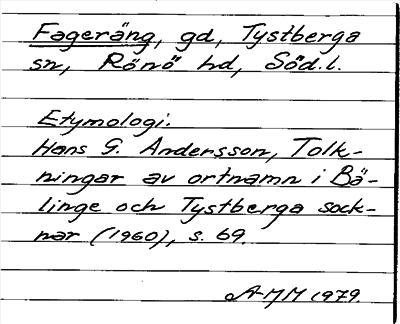 Fageräng, gd, Tystberga
sn, Rönö hd, Söd.l.
Etymologi:
Hans G. Andersson, Tolk-
ningar av ortnamn i Bä-
linge och Tystberga sock-
nar (1960), s. 69.
AMM 1979.